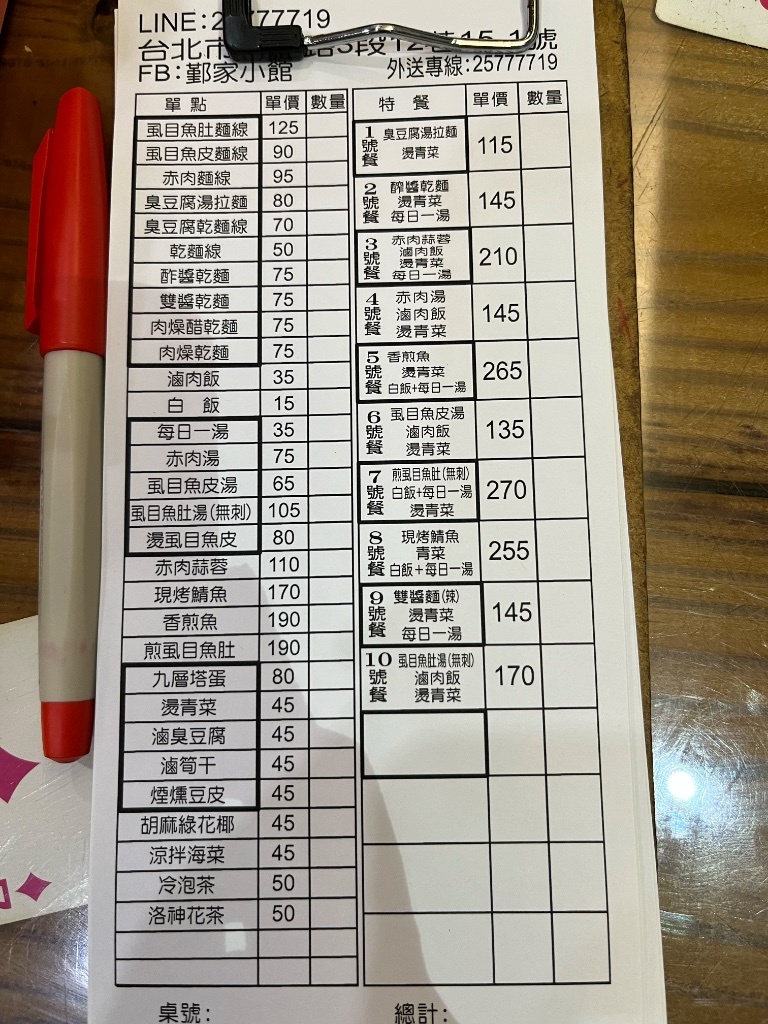 LINE:25777719
台北市
3段12巷15-1號
FB:鄞家小館
外送專線:25777719
單點 單價 數量
虱目魚肚麵線 125
虱目魚皮麵線 90
赤肉麵線 95
臭豆腐湯拉麵 80
臭豆腐乾麵線 70
乾麵線 50
酢醬乾麵 75
雙醬乾麵 75
肉燥醋乾麵 75
肉燥乾麵 75
滷肉飯 35
白飯 15
每日一湯 35
赤肉湯 75
虱目魚皮湯 65
虱目魚肚湯(無刺) 105
燙虱目魚皮 80
赤肉蒜蓉 110
現烤鯖魚 170
香煎魚 190
煎虱目魚肚 190
九層塔蛋 80
燙青菜 45
滷臭豆腐 45
滷筍干 45
煙燻豆皮 45
胡麻綠花椰 45
涼拌海菜 45
冷泡茶 50
洛神花茶 50
桌號:
特餐 單價 數量
1號餐 臭豆腐湯拉麵
燙青菜
115
2號餐 酢醬乾麵
燙青菜
每日一湯
145
3號餐 赤肉蒜蓉
滷肉飯
燙青菜
每日一湯
210
4號餐 赤肉湯
滷肉飯
燙青菜
145
5號餐 香煎魚
燙青菜
白飯+每日一湯
265
6號餐 虱目魚皮湯
滷肉飯
燙青菜
135
7號餐 煎虱目魚肚(無刺)
白飯+每日一湯
燙青菜
270
8號餐 現烤鯖魚
青菜
白飯+每日一湯
255
9號餐 雙醬麵(辣)
燙青菜
每日一湯
145
10號餐 虱目魚肚湯(無刺)
滷肉飯
燙青菜
170
總計: